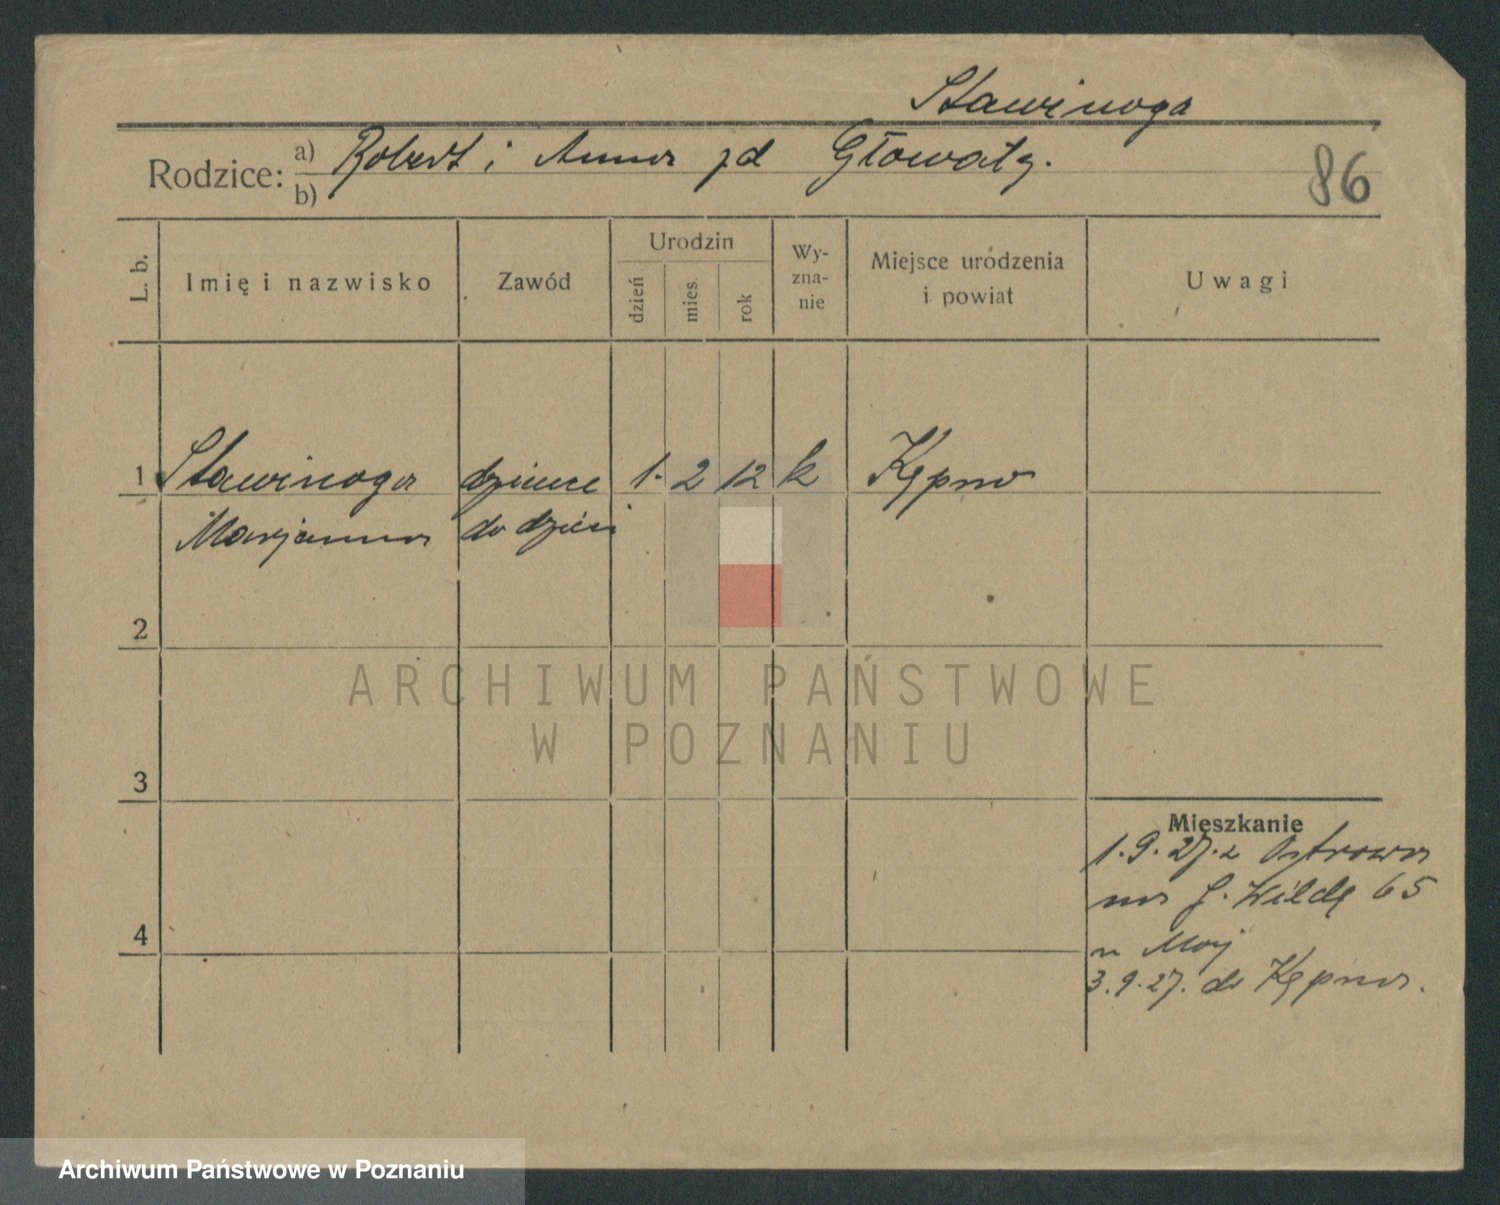 Stawinoga
Rodzice: a) Robert i Anna zd Głowaty.
b)
86
L. b.
Imię i nazwisko
Zawód
Urodzin
dzień
mies.
rok
Wy-
zna-
nie
Miejsce urodzenia
i powiat
Uwagi
1 Stawinoga dziewcz 1. 2 12 k Kępno
Marjanna do dzieci
2
3
4
Mieszkanie
1.9.27. z Ostrowa
na G. Wildę 65
3.9.27. do Kępna.
ARCHIWUM PAŃSTWOWE
W POZNANIU
Archiwum Państwowe w Poznaniu